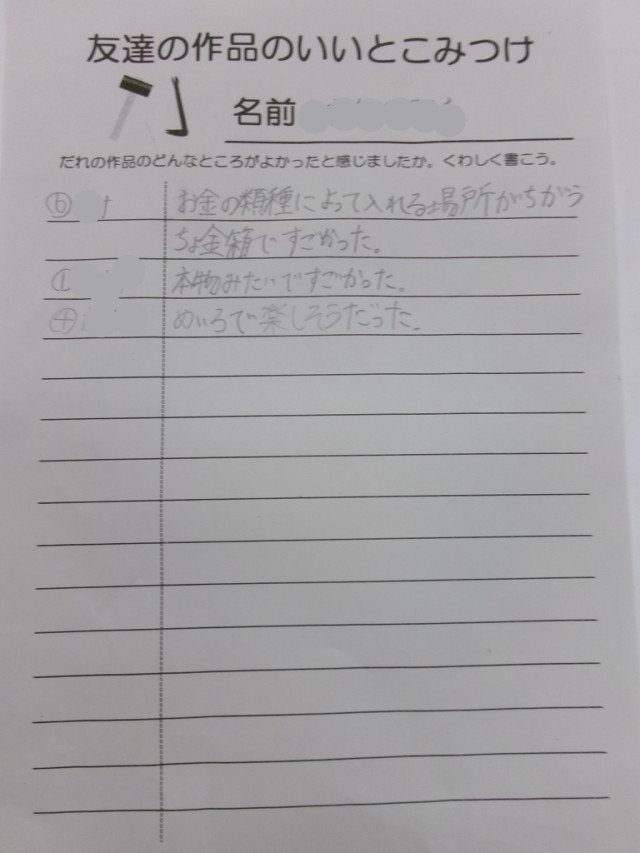 友達の作品のいいとこみつけ
名前
だれの作品のどんなところがよかったと感じましたか。くわしく書こう。
⑥ お金の類種によって入れる場所がちがう
ちょ金箱ですごかった。
① 本物みたいですごかった。
④ めいろで楽しそうだった.